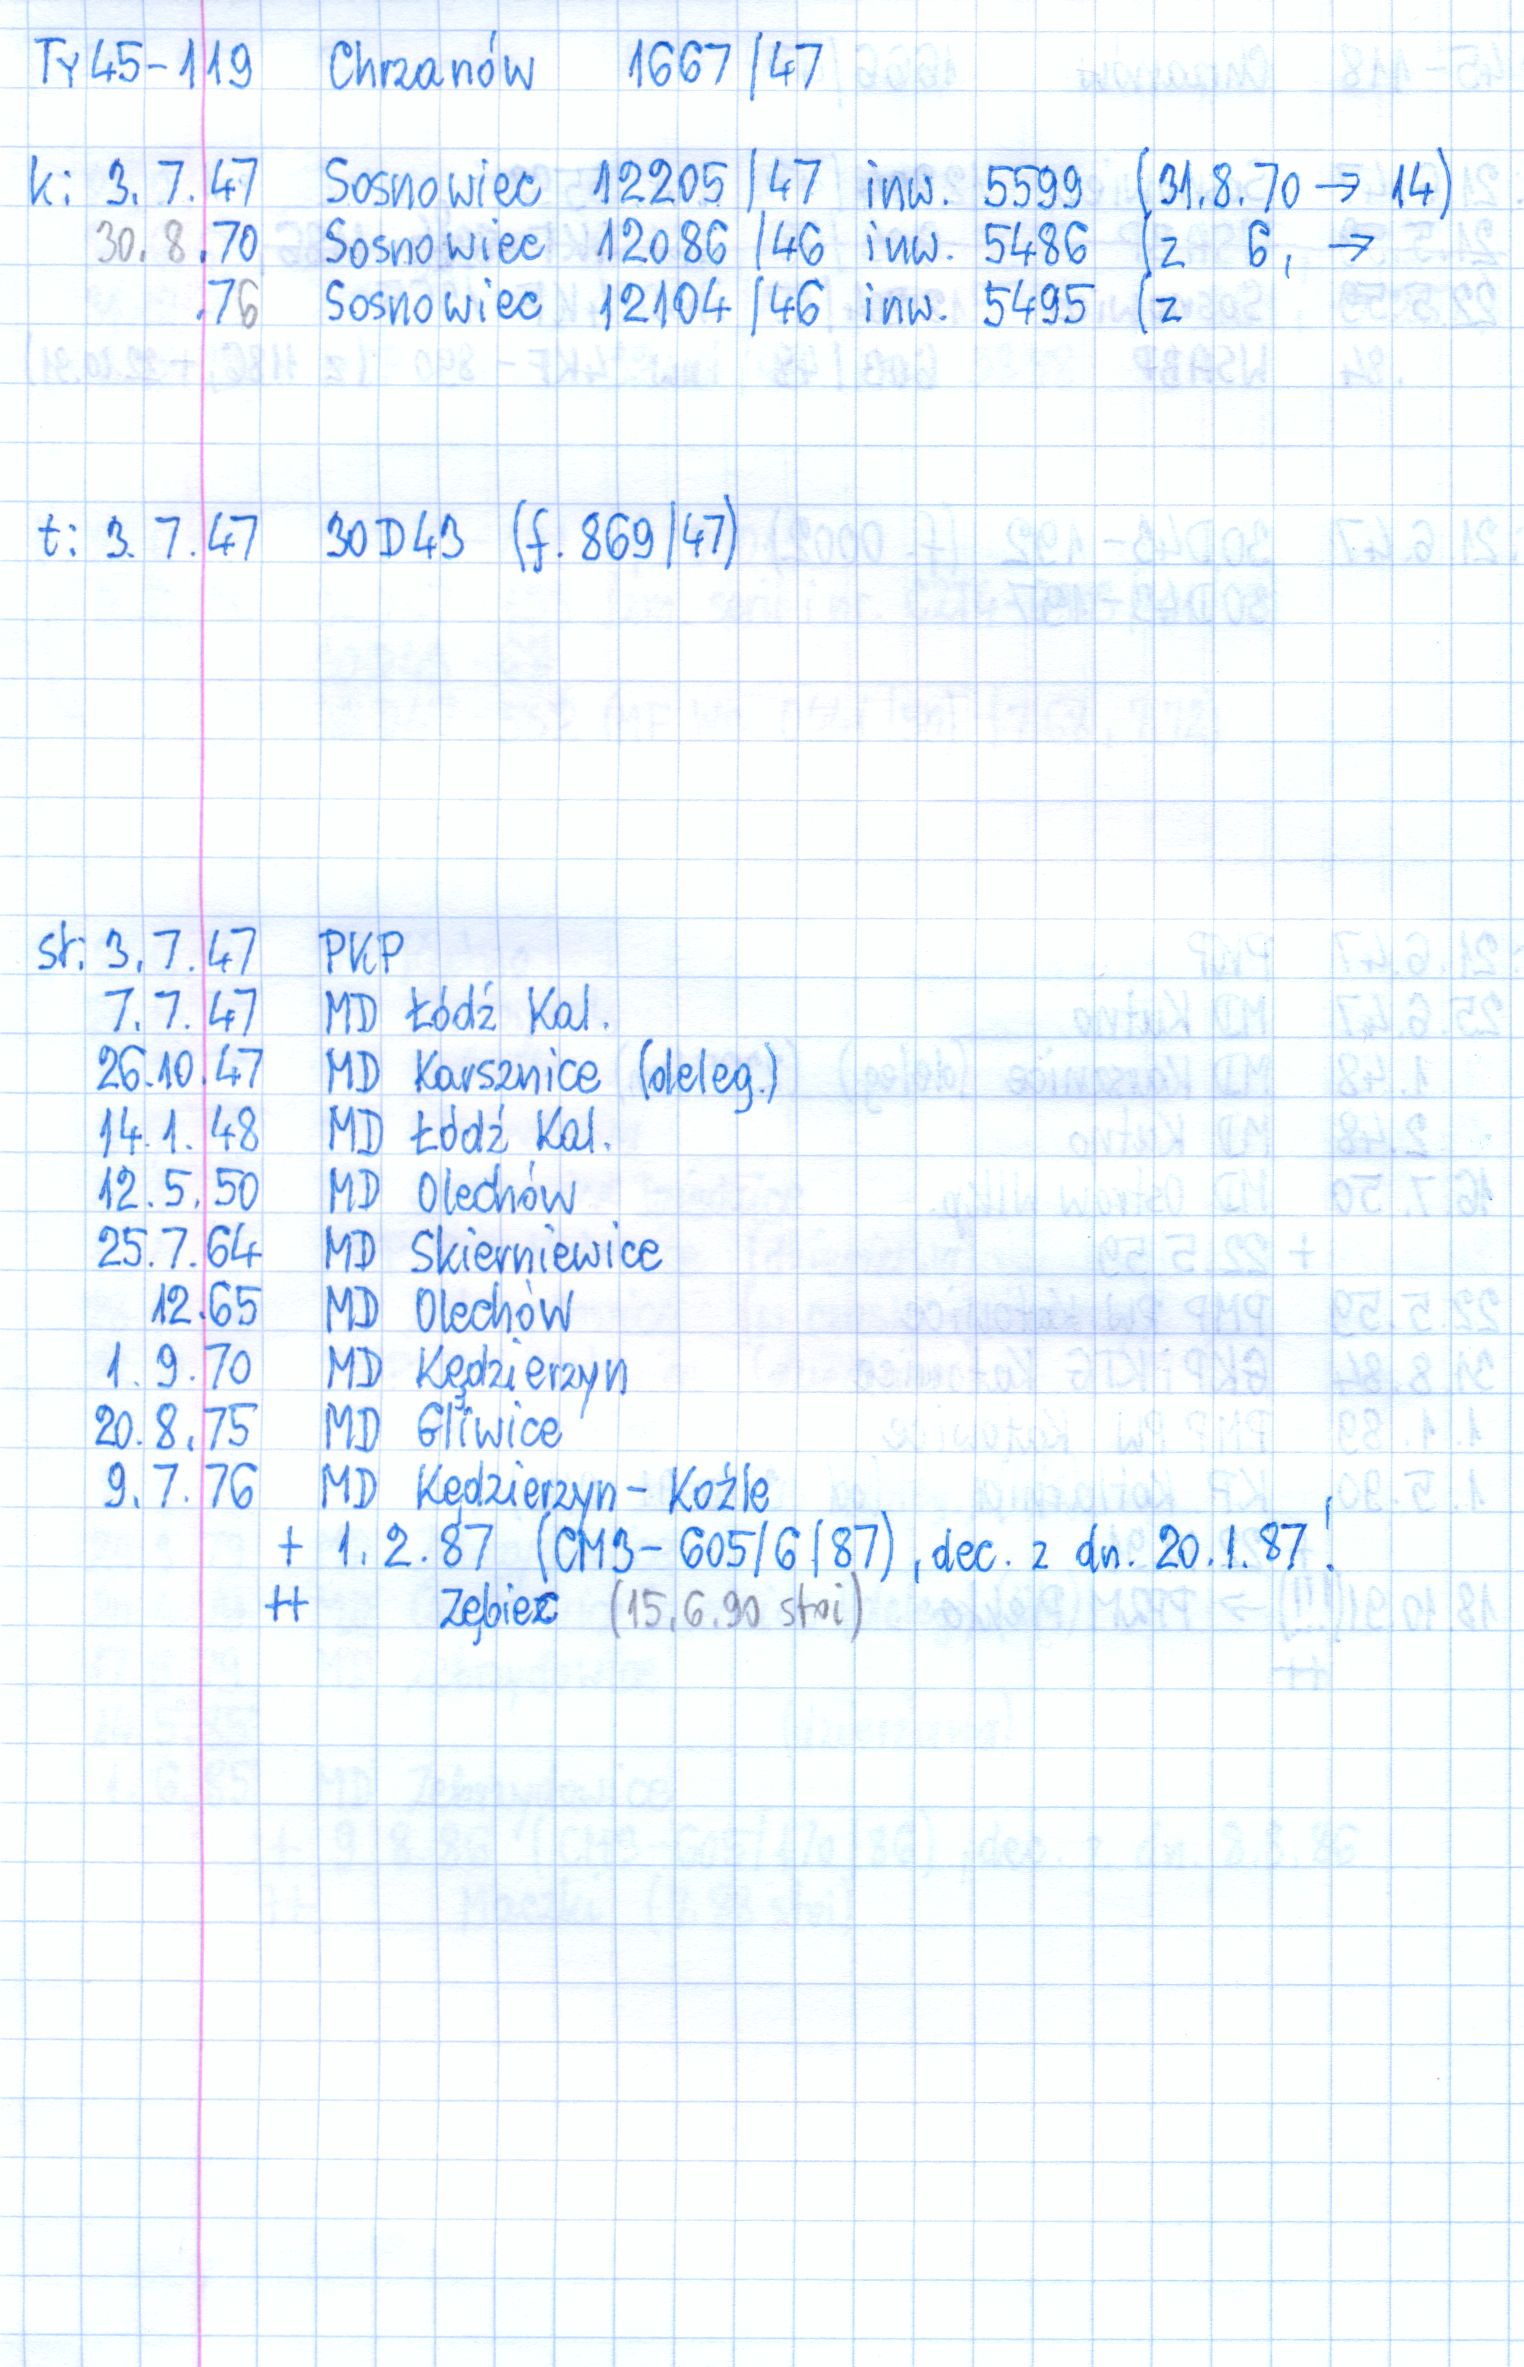 Ty45-119 Chrzanów 1667/47
k: 3.7.47 Sosnowiec 12205/47 inw. 5599 (31.8.70 → 14)
30.8.70 Sosnowiec 12086/46 inw. 5486 (z 6, →
.76 Sosnowiec 12104/46 inw. 5495 (z
t: 3.7.47 30D43 (f. 869/47)
st: 3.7.47 PKP
7.7.47 MD Łódź Kal.
26.10.47 MD Karsznice (deleg.)
14.1.48 MD Łódź Kal.
12.5.50 MD Olechów
25.7.64 MD Skierniewice
12.65 MD Olechów
1.9.70 MD Kędzierzyn
20.8.75 MD Gliwice
9.7.76 MD Kędzierzyn-Koźle
+ 1.2.87 (CM3-605/6/87), dec. z dn. 20.1.87!
++ Zębiec (15.6.90 stoi)